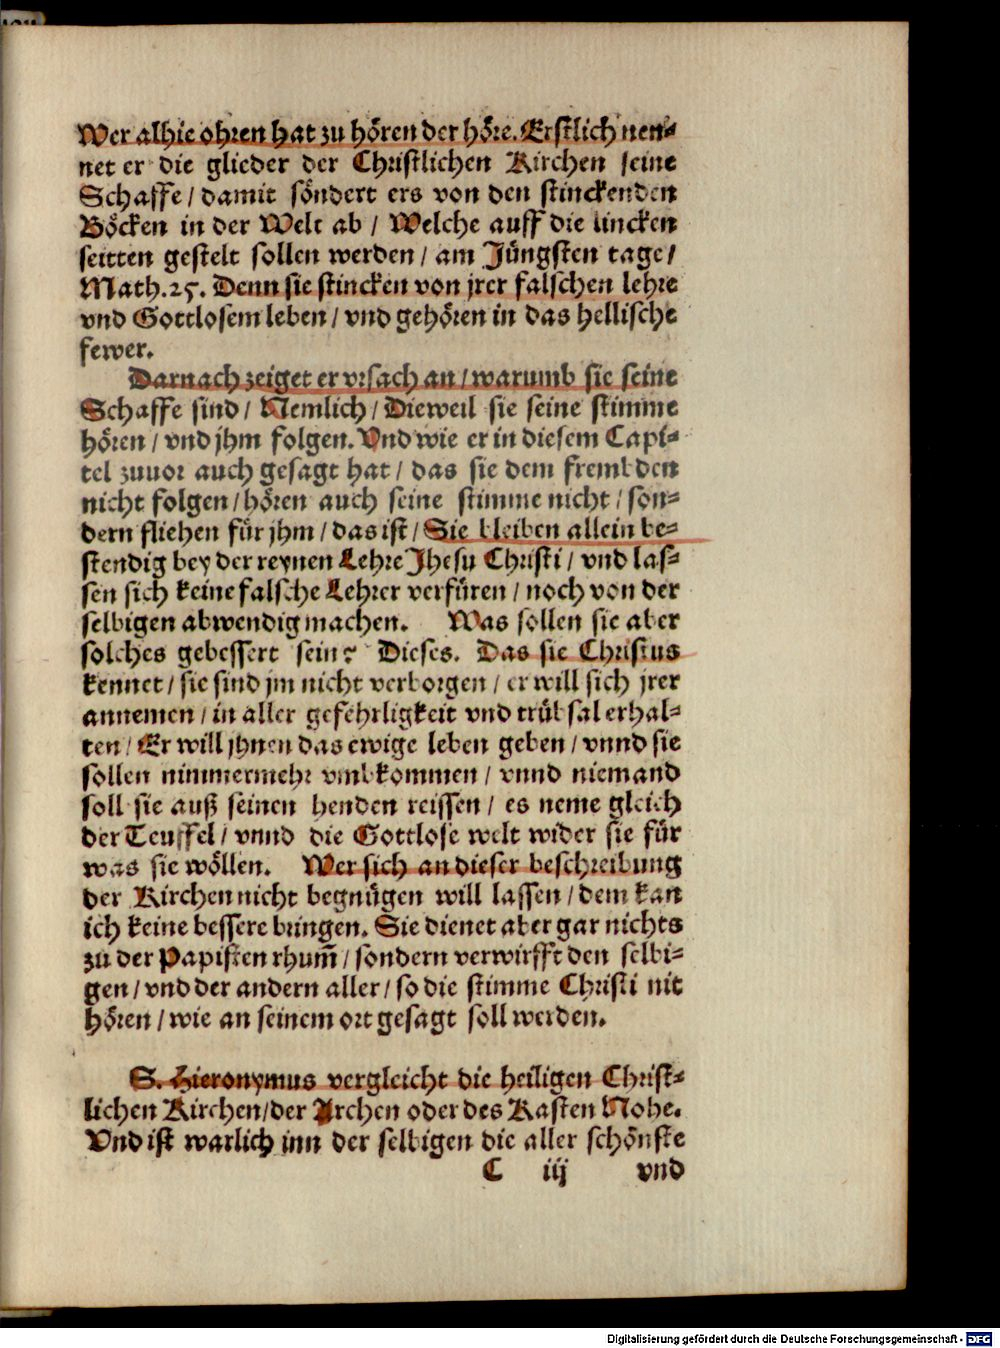 Wer alhie ohren hat zu hören der höre. Erstlich nen-
net er die glieder der Christlichen Kirchen seine
Schaffe / damit söndert ers von den stinckenden
Böcken in der Welt ab / Welche auff die lincken
seitten gestelt sollen werden / am Jüngsten tage /
Math. 25. Denn sie stincken von jrer falschen lehre
vnd Gottlosem leben / vnd gehören in das hellische
fewer.
Darnach zeiget er vrsach an / warumb sie seine
Schaffe sind / Nemlich / Dieweil sie seine stimme
hören / vnd jhm folgen. Vnd wie er in diesem Capi-
tel zuuor auch gesagt hat / das sie dem frembden
nicht folgen / hören auch seine stimme nicht / son-
dern fliehen für jhm / das ist / Sie bleiben allein be-
stendig bey der reynen Lehre Jhesu Christi / vnd las-
sen sich keine falsche Lehrer verfüren / noch von der
selbigen abwendig machen. Was sollen sie aber
solches gebessert sein? Dieses. Das sie Christus
kennet / sie sind jm nicht verborgen / er will sich jrer
annemen / in aller gefehrligkeit vnd trübsal erhal-
ten / Er will jhnen das ewige leben geben / vnnd sie
sollen nimmermehr vmbkommen / vnnd niemand
soll sie auß seinen henden reissen / es neme gleich
der Teuffel / vnnd die Gottlose welt wider sie für
was sie wöllen. Wer sich an dieser beschreibung
der Kirchen nicht begnügen will lassen / dem kan
ich keine bessere bringen. Sie dienet aber gar nichts
zu der Papisten rhum̃ / sondern verwirfft den selbi-
gen / vnd der andern aller / so die stimme Christi nit
hören / wie an seinem ort gesagt soll werden.
S. Hieronymus vergleicht die heiligen Christ-
lichen Kirchen / der Archen oder des Kasten Nohe.
Vnd ist warlich inn der selbigen die aller schönste
C iij vnd
Digitalisierung gefördert durch die Deutsche Forschungsgemeinschaft - DFG